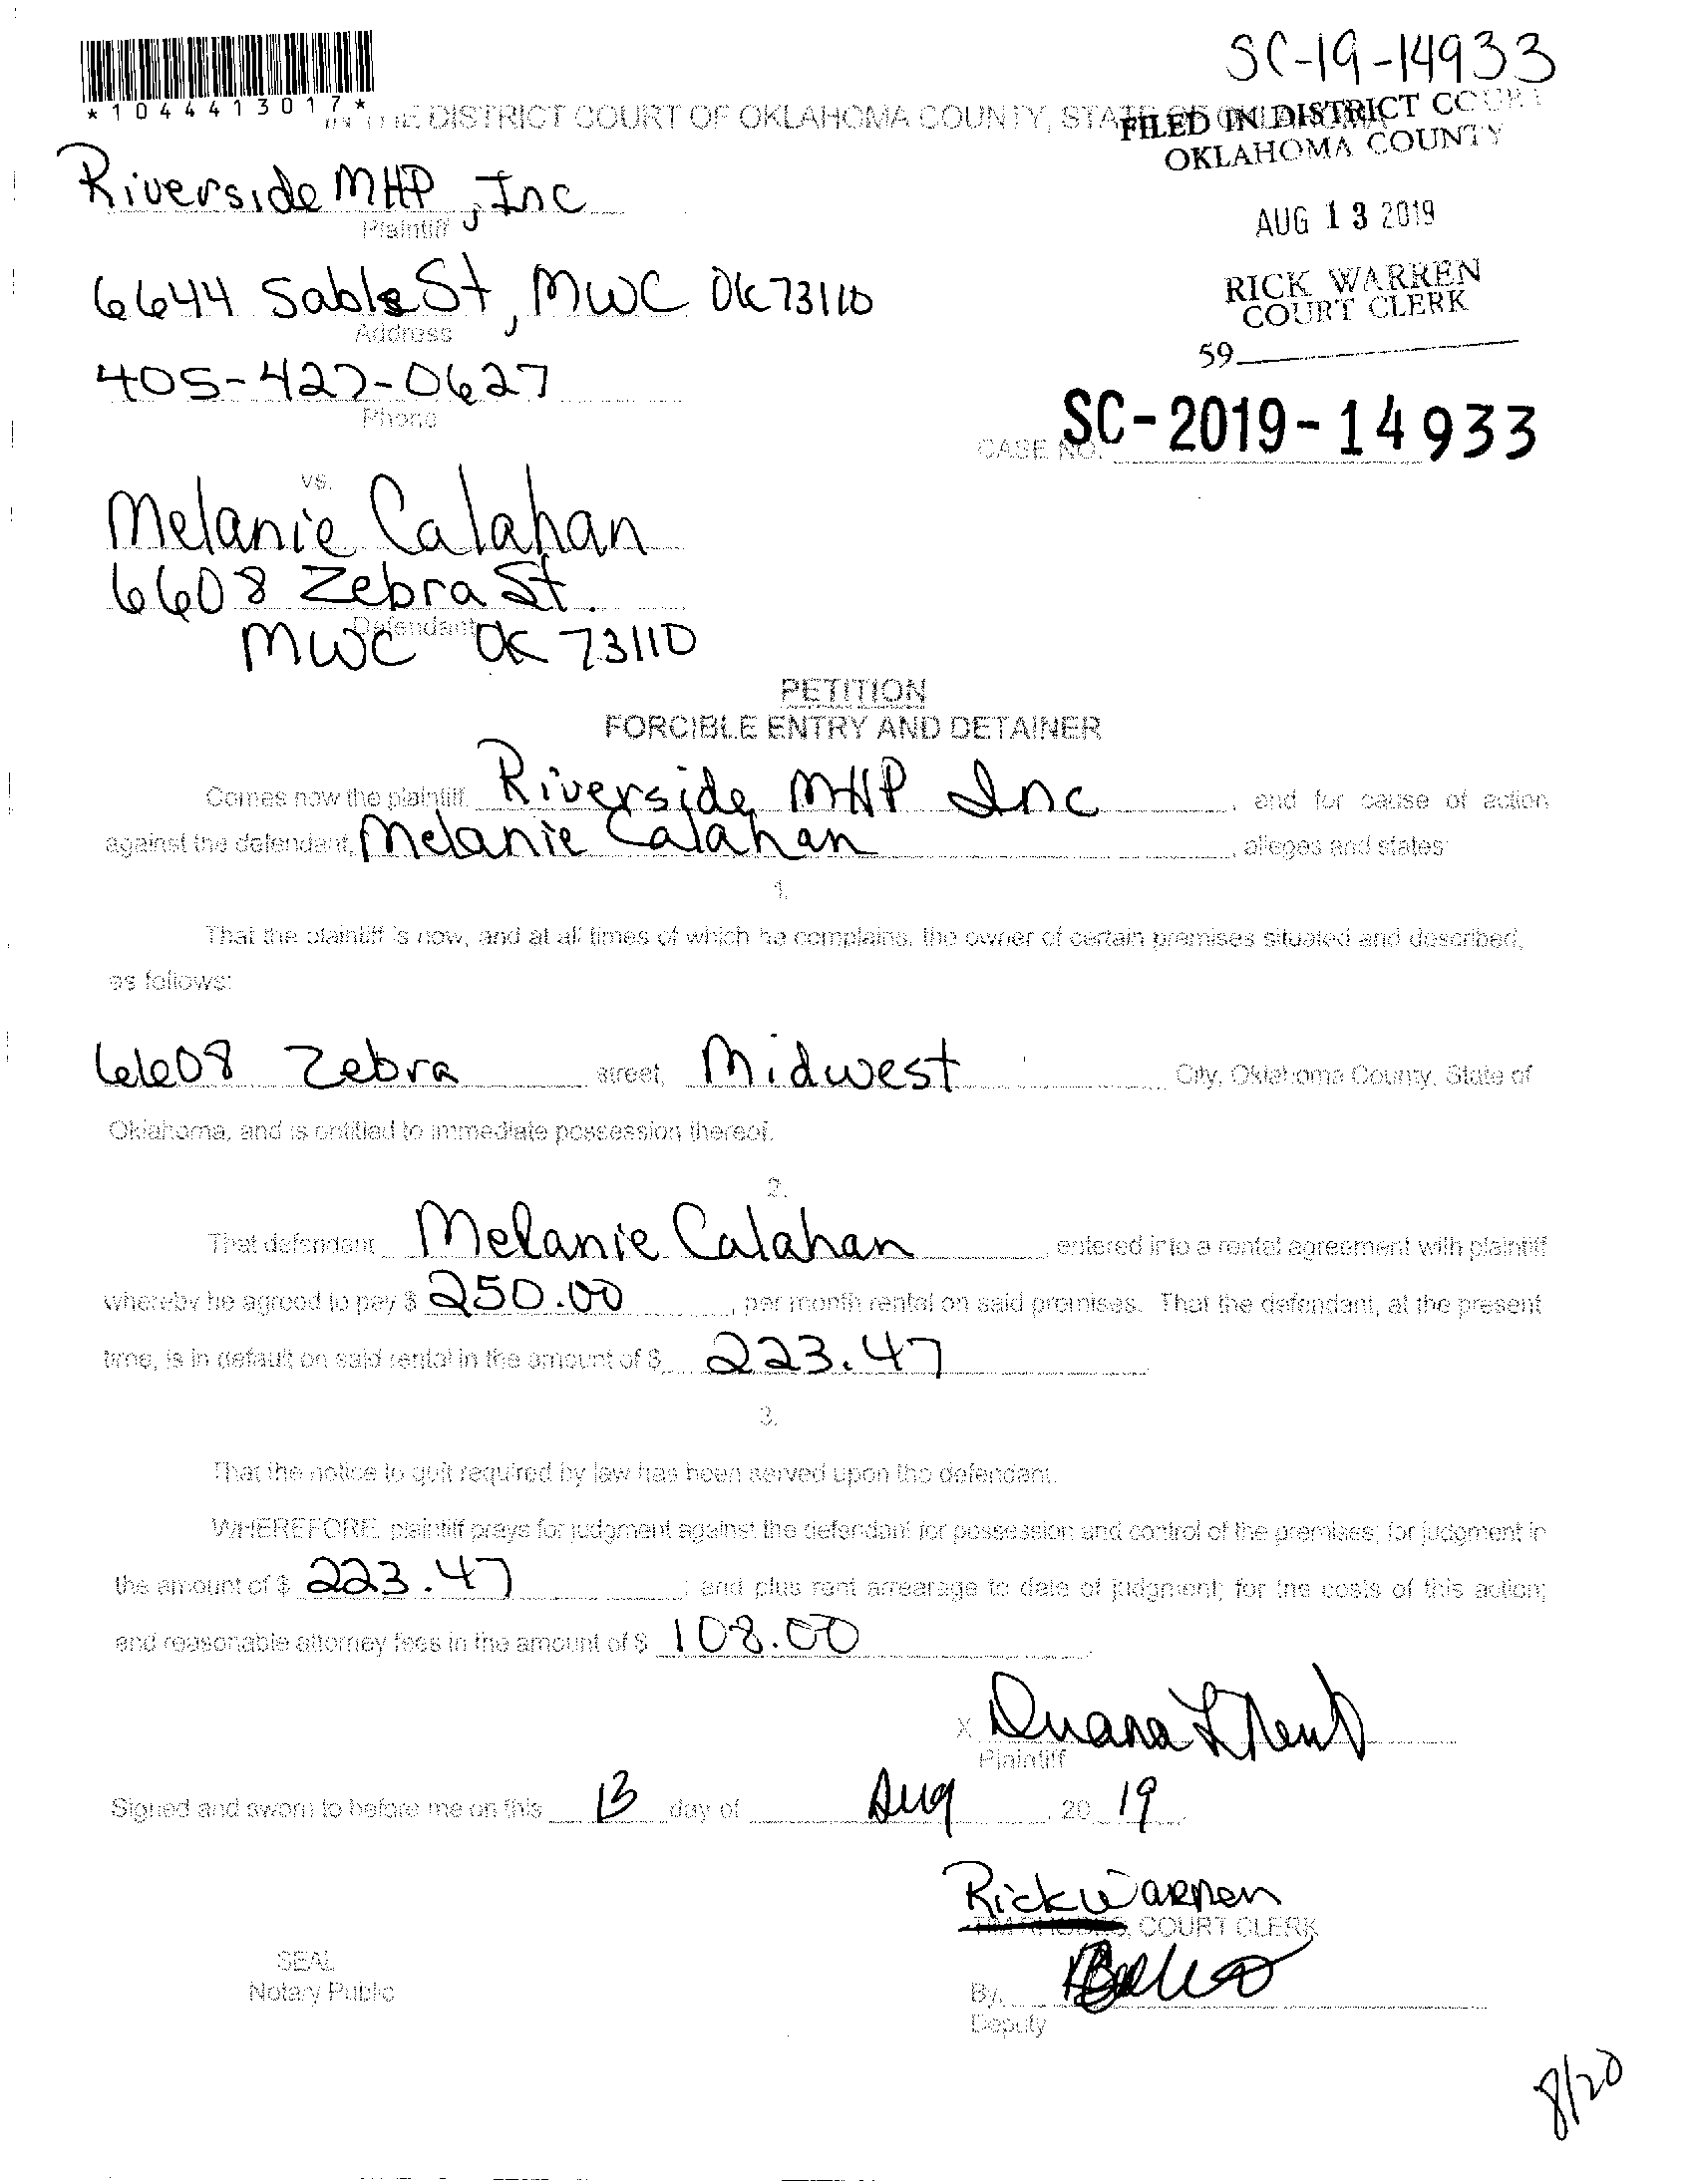 SC-19-14933
*1044413017*
IN THE DISTRICT COURT OF OKLAHOMA COUNTY, STATE OF OKLAHOMA
FILED IN DISTRICT COURT
OKLAHOMA COUNTY
Riverside MHP, Inc
Plaintiff
AUG 13 2019
6644 Sable St, MWC OK 73110
Address
RICK WARREN
COURT CLERK
405-427-0627
Phone
59
CASE NO. SC-2019-14933
vs.
Melanie Calahan
6608 Zebra St.
Defendant
MWC OK 73110
PETITION
FORCIBLE ENTRY AND DETAINER
Comes now the plaintiff, Riverside MHP Inc, and for cause of action
against the defendant, Melanie Calahan, alleges and states:
1.
That the plaintiff is now, and at all times of which he complains, the owner of certain premises situated and described,
as follows:
6608 Zebra street, Midwest City, Oklahoma County, State of
Oklahoma, and is entitled to immediate possession thereof.
2.
That defendant Melanie Calahan entered into a rental agreement with plaintiff
whereby he agreed to pay $ 250.00, per month rental on said premises. That the defendant, at the present
time, is in default on said rental in the amount of $ 223.47.
3.
That the notice to quit required by law has been served upon the defendant.
WHEREFORE, plaintiff prays for judgment against the defendant for possession and control of the premises; for judgment in
the amount of $ 223.47; and plus rent arrearage to date of judgment; for the costs of this action;
and reasonable attorney fees in the amount of $ 108.00.
X
Plaintiff
Signed and sworn to before me on this 13 day of Aug, 20 19.
Rick Warren
COURT CLERK
SEAL
Notary Public
By,
Deputy
8/20